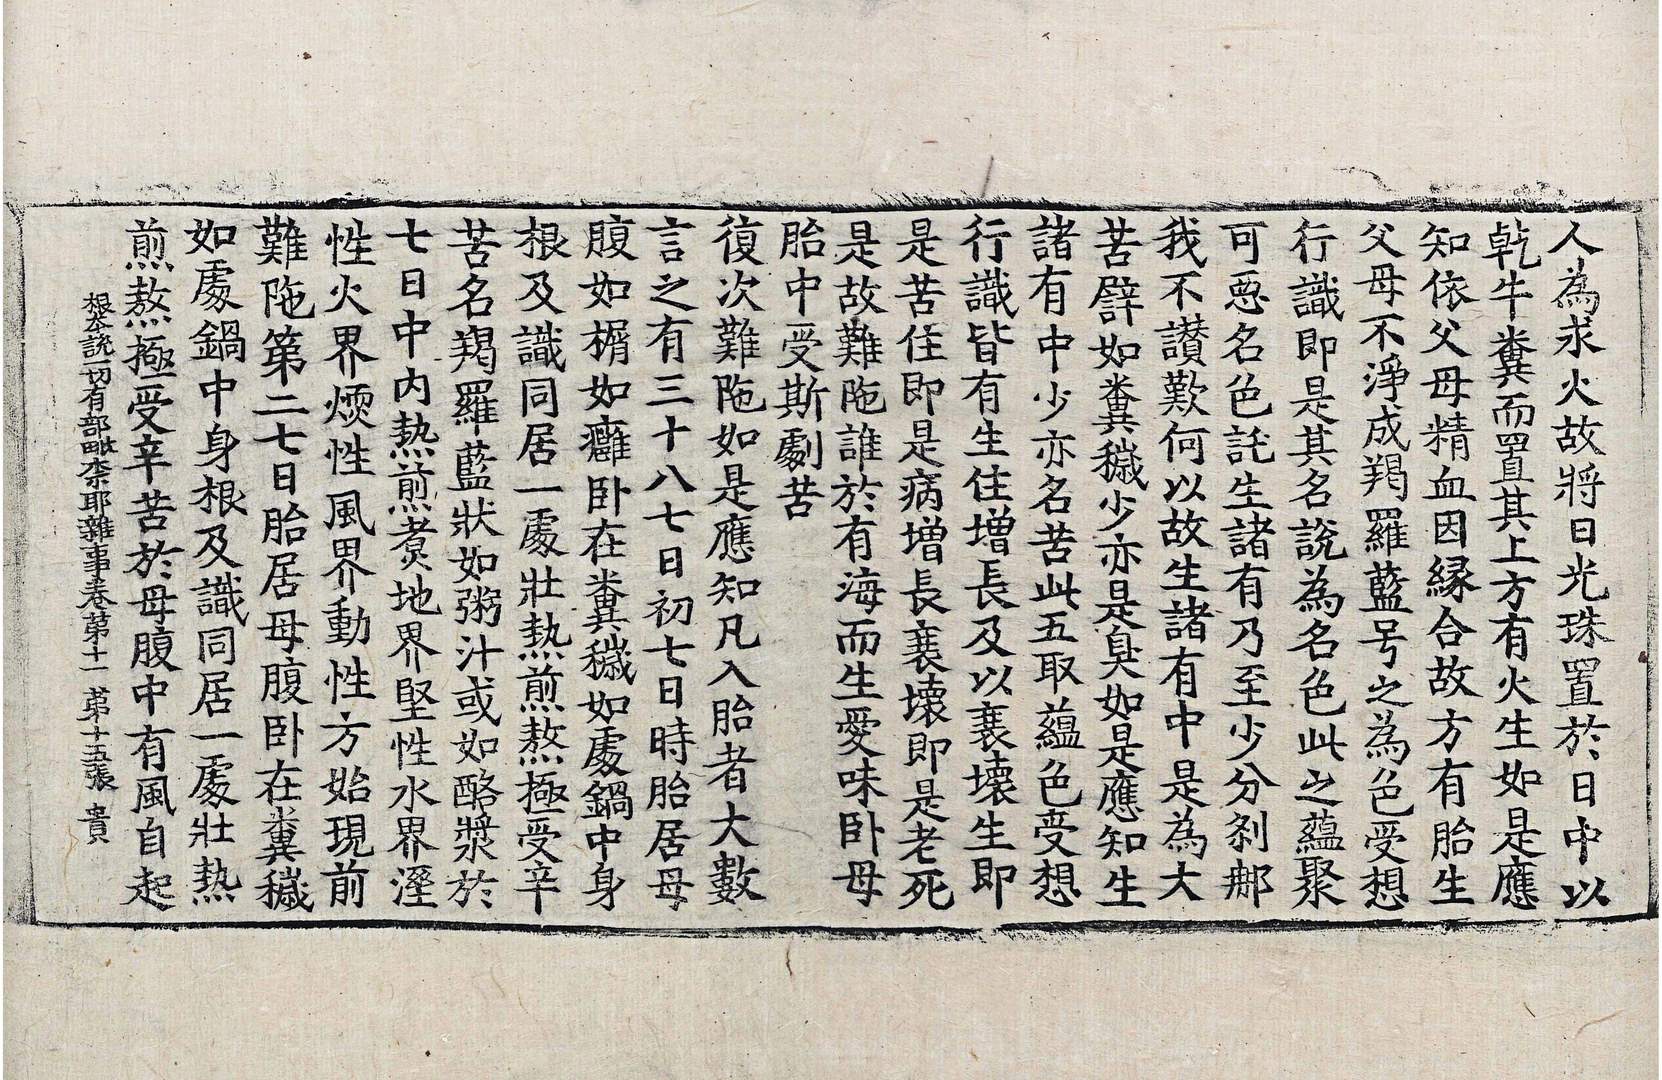 人為求火故將日光珠置於日中以
乾牛糞而置其上方有火生如是應
知依父母精血因縁合故方有胎生
父母不淨成羯羅藍号之為色受想
行識即是其名說為名色此之蘊聚
可惡名色託生諸有乃至少分刹那
我不讃歎何以故生諸有中是為大
苦譬如糞穢少亦是臭如是應知生
諸有中少亦名苦此五取蘊色受想
行識皆有生住增長及以衰壞生即
是苦住即是病增長衰壞即是老死
是故難陁誰於有海而生愛味卧母
胎中受斯劇苦
復次難陁如是應知凡入胎者大數
言之有三十八七日初七日時胎居母
腹如榍如癰卧在糞穢如處鍋中身
根及識同居一處壯熱煎熬極受辛
苦名羯羅藍狀如粥汁或如酪漿於
七日中內熱煎煑地界堅性水界溼
性火界煗性風界動性方始現前
難陁第二七日胎居母腹卧在糞穢
如處鍋中身根及識同居一處壯熱
煎熬極受辛苦於母腹中有風自起
根本說一切有部毗柰耶雜事卷第十一 第十五張 貴